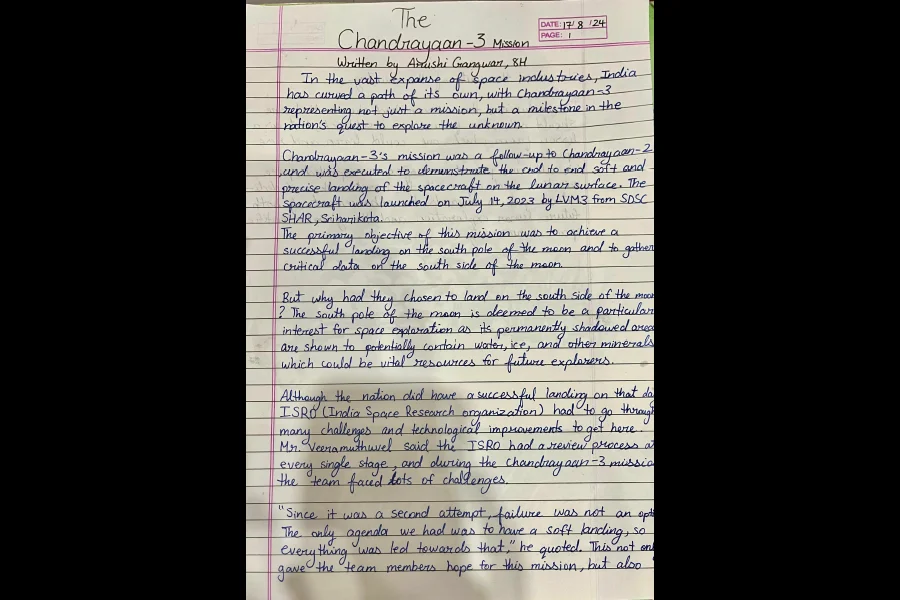 The
DATE: 17/8/24
PAGE: 1
Chandrayaan-3 Mission
Written by Arushi Gangwar, 8H
In the vast expanse of space industries, India
has curved a path of its own, with Chandrayaan-3
representing not just a mission, but a milestone in the
nation's quest to explore the unknown.
Chandrayaan-3's mission was a follow-up to Chandrayaan-2
and was executed to demonstrate the end to end soft and
precise landing of the spacecraft on the lunar surface. The
spacecraft was launched on July 14, 2023 by LVM3 from SDSC
SHAR, Sriharikota.
The primary objective of this mission was to achieve a
successful landing on the south pole of the moon and to gather
critical data on the south side of the moon.
But why had they chosen to land on the south side of the moon
? The south pole of the moon is deemed to be a particular
interest for space exploration as its permanently shadowed area
are shown to potentially contain water, ice, and other minerals
which could be vital resources for future explorers.
Although the nation did have a successful landing on that da
ISRO (India Space Research organization) had to go through
many challenges and technological improvements to get here.
Mr. Veeramuthuvel said the ISRO had a review process at
every single stage, and during the Chandrayaan-3 missio
the team faced lots of challenges.
"Since it was a second attempt, failure was not an opt
The only agenda we had was to have a soft landing, so
everything was led towards that," he quoted. This not on
gave the team members hope for this mission, but also